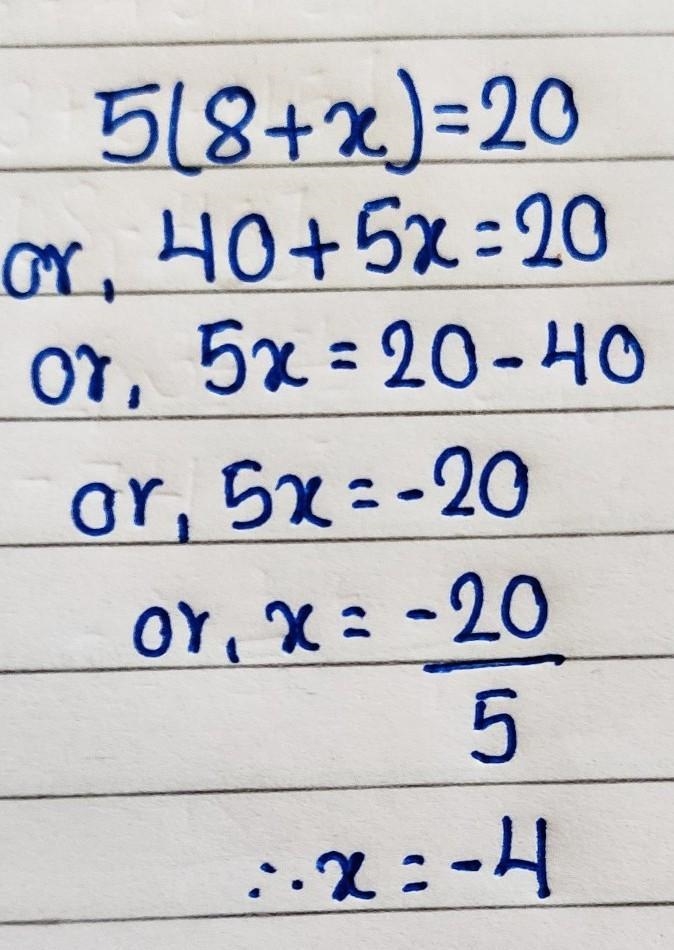 5(8+x)=20
or, 40+5x=20
or, 5x=20-40
or, 5x=-20
or, x=-20
5
∴x=-4